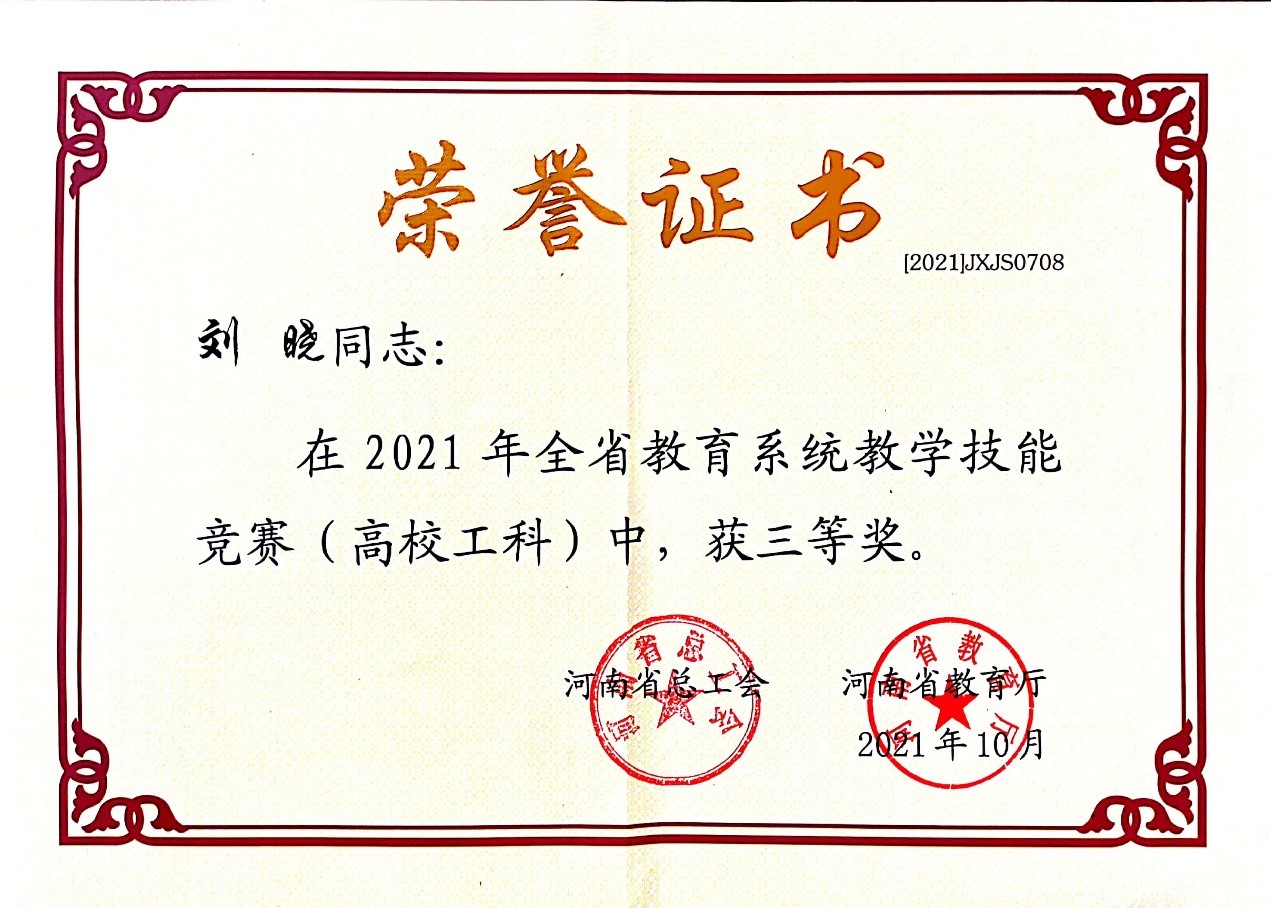 荣誉证书
[2021]JXJS0708
刘 晓同志：
在 2021 年全省教育系统教学技能
竞赛（高校工科）中，获三等奖。
河南省总工会 河南省教育厅
2021 年 10 月
河南省总工会
河南省教育厅